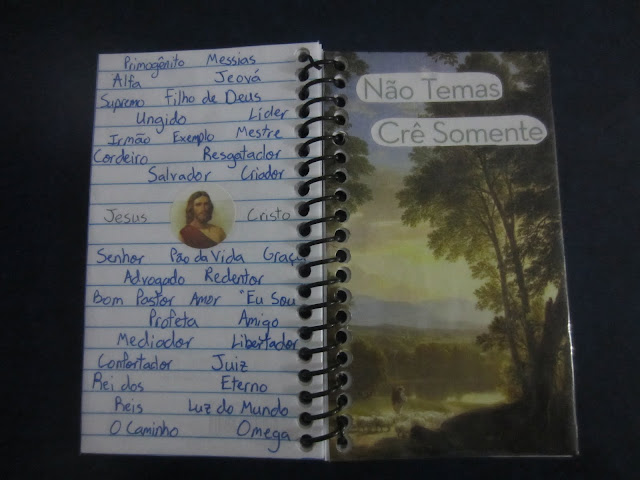 Primogênito Messias
Alfa Jeová
Supremo Filho de Deus
Ungido Líder
Irmão Exemplo Mestre
Cordeiro Resgatador
Salvador Criador
Jesus Cristo
Senhor Pão da Vida Graça
Advogado Redentor
Bom Pastor Amor "Eu Sou
Profeta Amigo
Mediador Libertador
Confortador Juiz
Rei dos Eterno
Reis Luz do Mundo
O Caminho Omega
Não Temas
Crê Somente